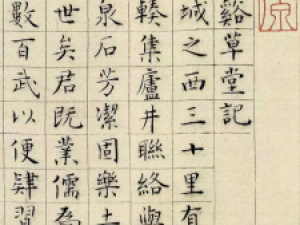 谿草堂記
城之西三十里有
輳集廬井聯絡
泉石芳潔固樂土
世矣君既業儒為
數百武以便肄習